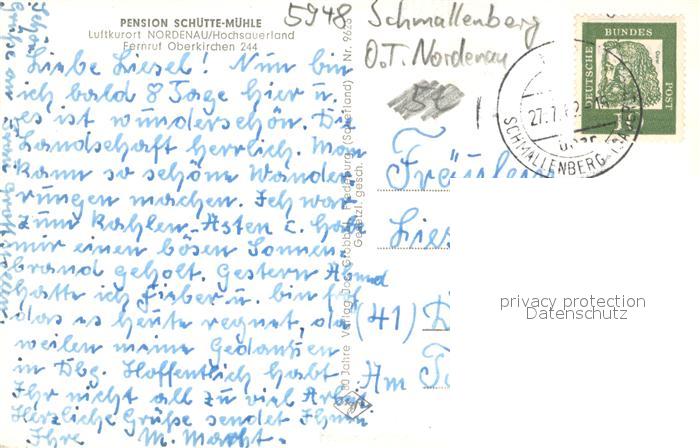 PENSION SCHÜTTE-MÜHLE
Luftkurort NORDENAU/Hochsauerland
Fernruf Oberkirchen 244
Liebe Liesel! Nun bin
ich bald 8 Tage hier u.
es ist wunderschön. Die
Landschaft herrlich. Man
kann so schöne Wande-
rungen machen. Ich war
zum Kahlen-Asten u. habe
mir einen bösen Sonnen-
brand geholt. Gestern Abend
hatte ich Fieber u. bin froh
das es heute regnet,
weilen meine Gedanken
in Dbg. Hoffentlich habt
Ihr nicht all zu viel Arbeit
Herzliche Grüße sendet Ihnen
Ihre M. Macht.
60 Jahre Verlag Jos. Grobbel, Fredeburg (Schieferland) Nr. 9625
Gesetzl. gesch.
5948 Schmallenberg
O.T. Nordenau
DEUTSCHE BUNDESPOST
27.7.
SCHMALLENBERG
Fräulein
Lies
(41) D
Am
privacy protection
Datenschutz